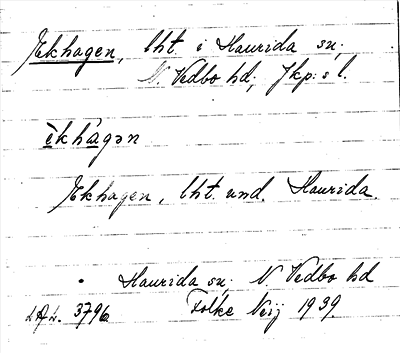 Ekhagen, lht. i Haurida sn;
N. Vedbo hd; Jkp:s l.
èkhàgən
Ekhagen, lht. und. Haurida.
Haurida sn; N Vedbo hd
LAL. 3796 Folke Neij 1939